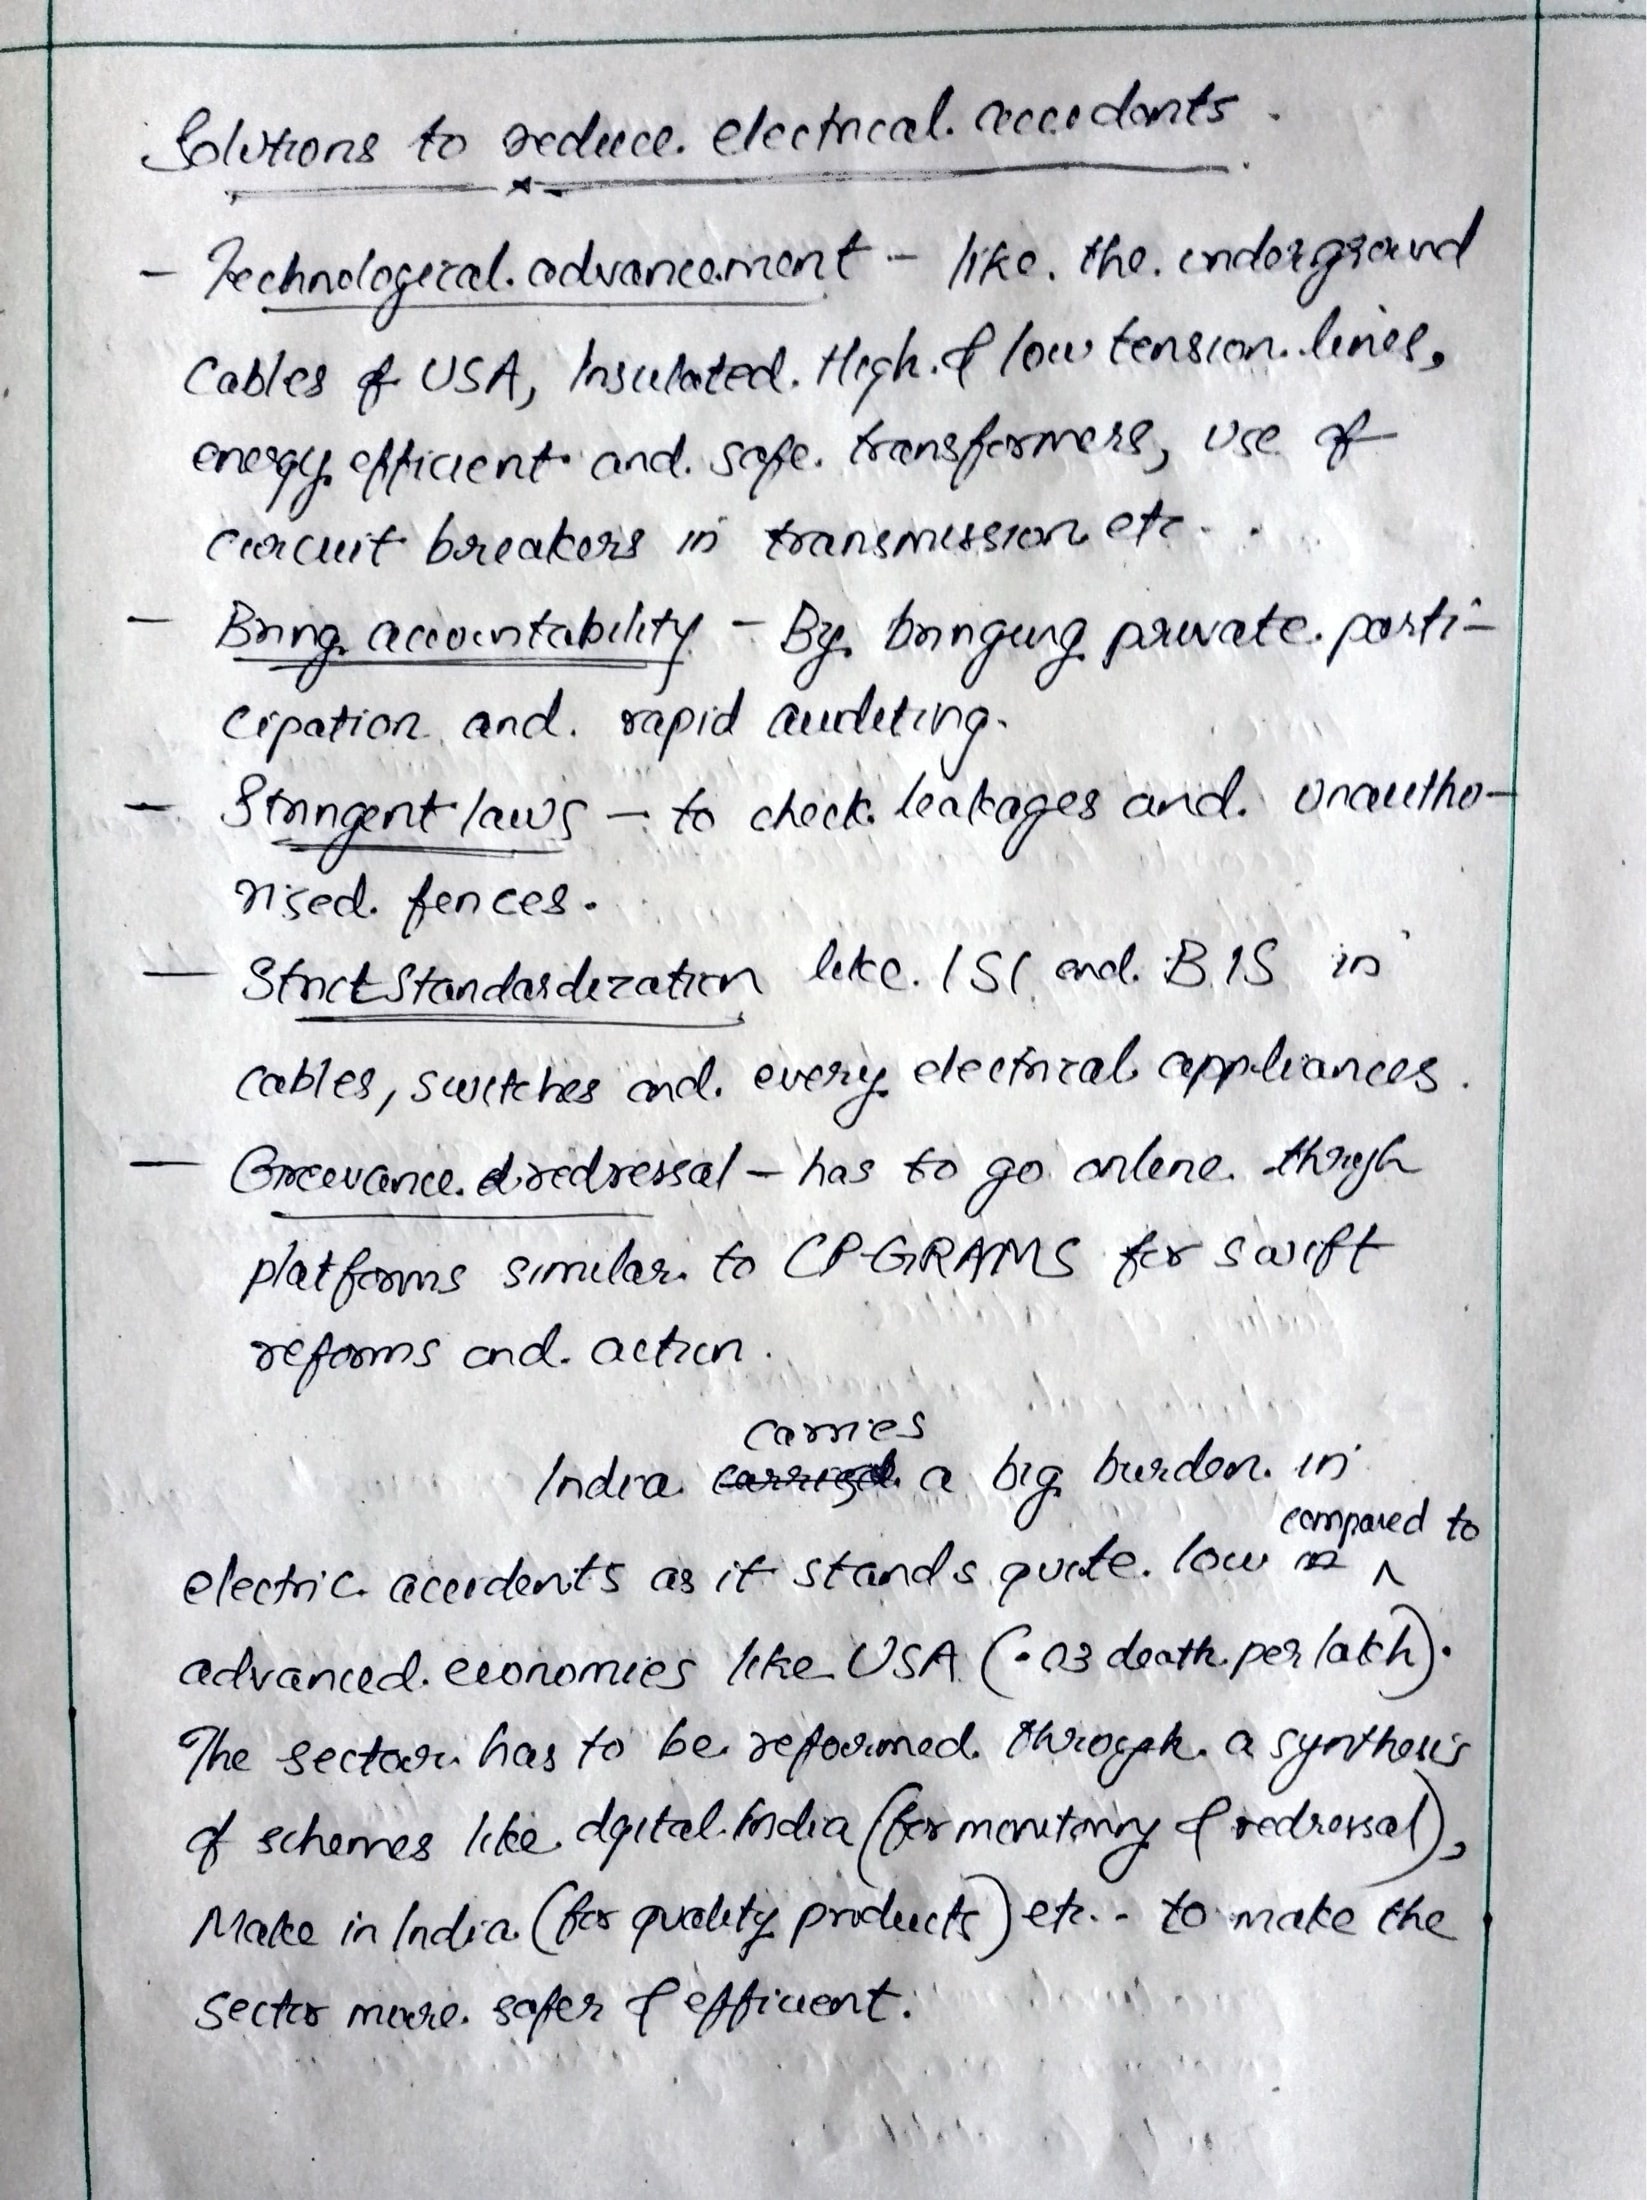 Solutions to reduce electrical accedants.
- Technological advancement - like the underground
Cables of USA, Insulated High & low tension lines,
energy efficient and safe transformers, use of
circuit breakers in transmission etc..
- Bring accountability - By bringing private parti-
cipation and rapid auditing.
- Stringent laws - to check leakages and unautho-
rised fences.
- Strict Standardization like ISI and BIS in
cables, switches and every electrical appliances.
- Greevance redressal - has to go online through
platforms similar to CP-GRAMS for swift
reforms and action.
India carries a big burden in
electric accidents as it stands quite low compared to
advanced economies like USA (.03 death per lakh).
The sector has to be reformed through a synthesis
of schemes like digital India (for monitoring & redressal),
Make in India (for quality products) etc.. to make the
sector more safer & efficient.